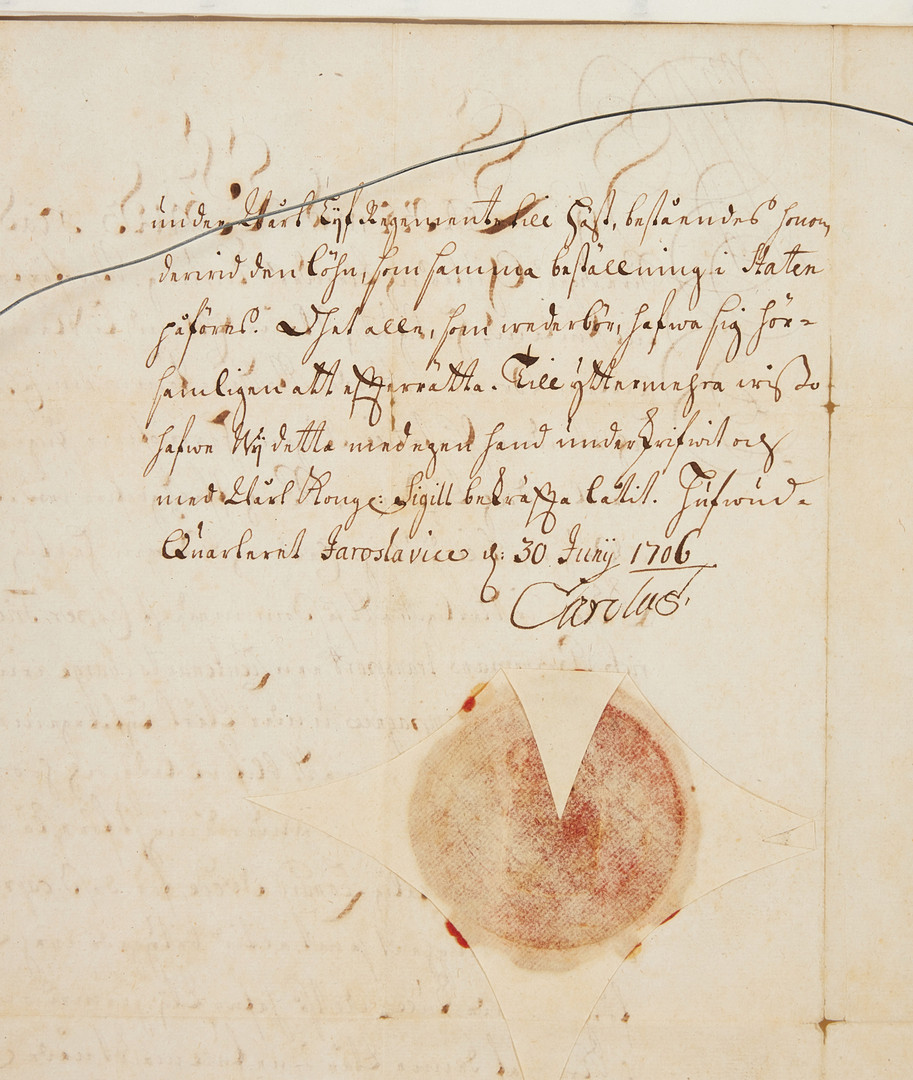 under Wårt Lyf Regemente till Häst, beståendes honom
derwid den löhn, som samma beställning i Staten
påföres. Thet alle, som wederbör, hafwa sig hör-
samligen att effterrätta. Till yttermehra wisso
hafwe Wij detta med egen hand underskrifwit och
med Wårt Kongl: Sigill bekräffta latit. Hufwud-
Quarteret Jaroslavice d: 30 Junij 1706
Carolus.